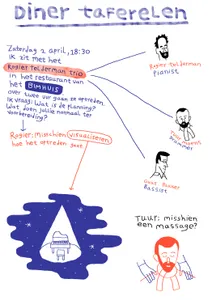 Diner taferelen
Zaterdag 2 april, 18:30
ik zit met het
Rogier Telderman trio
in het restaurant van
het BIMHUIS
over twee uur gaan ze optreden.
Ik vraag: Wat is de planning?
Wat doen jullie normaal ter
voorbereiding?
Rogier: Misschien visualiseren
hoe het optreden gaat
Rogier Telderman
Pianist
Tuur Moens
Drummer
Guus Bakker
Bassist
Tuur: misschien
een massage?